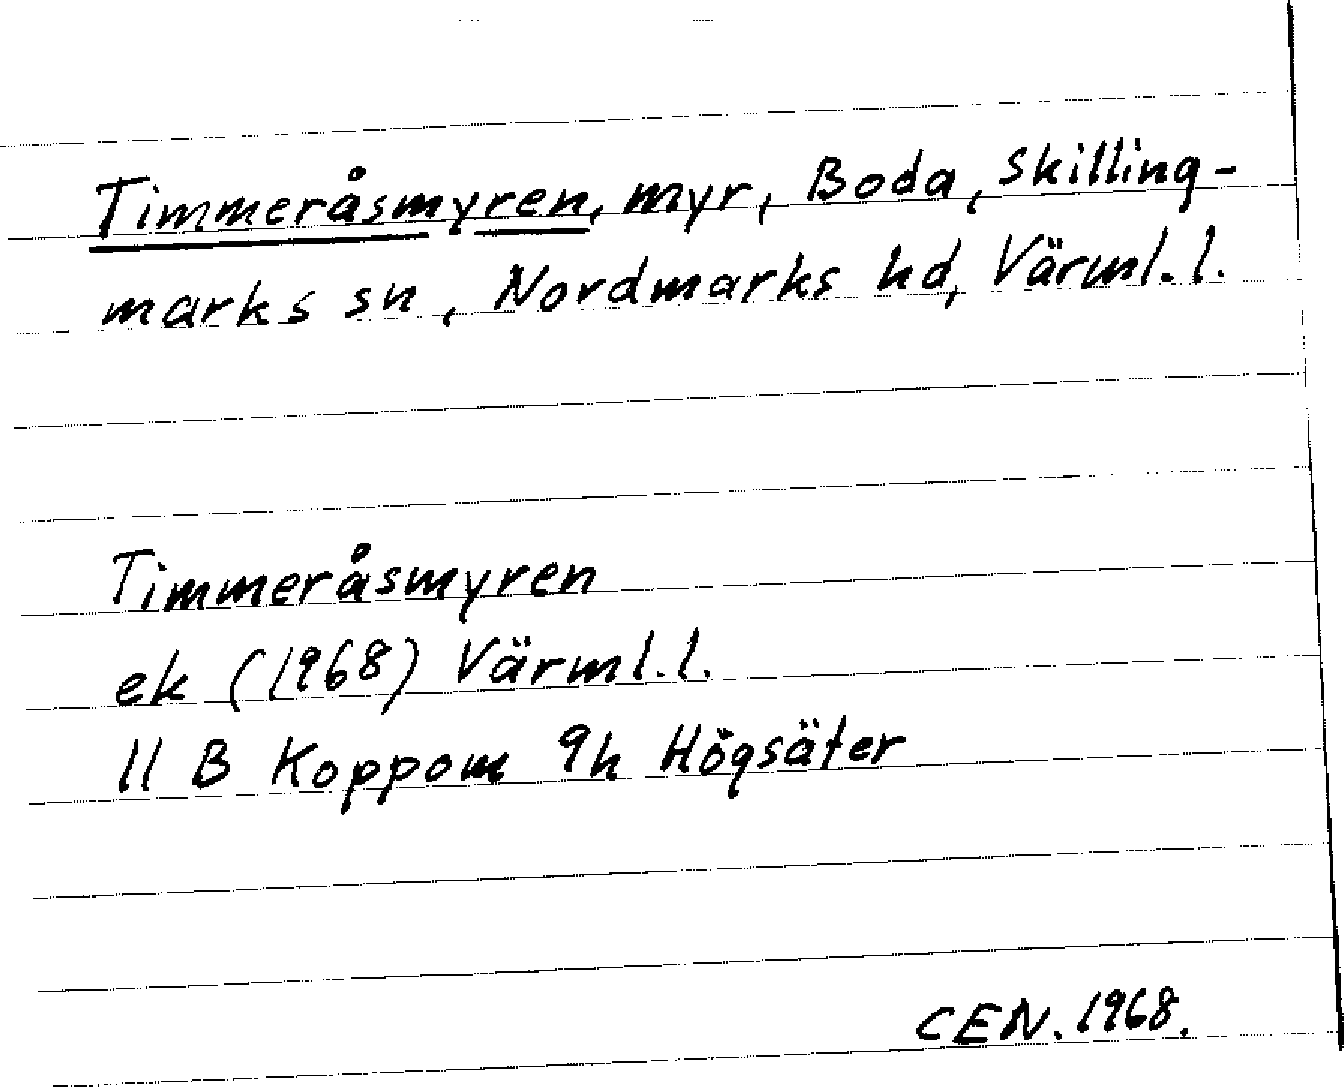 Timmeråsmyren, myr, Boda, Skilling-
marks sn, Nordmarks hd, Värml. l.
Timmeråsmyren
ek (1968) Värml. l.
11 B Koppom 9h Högsäter
CEN. 1968.